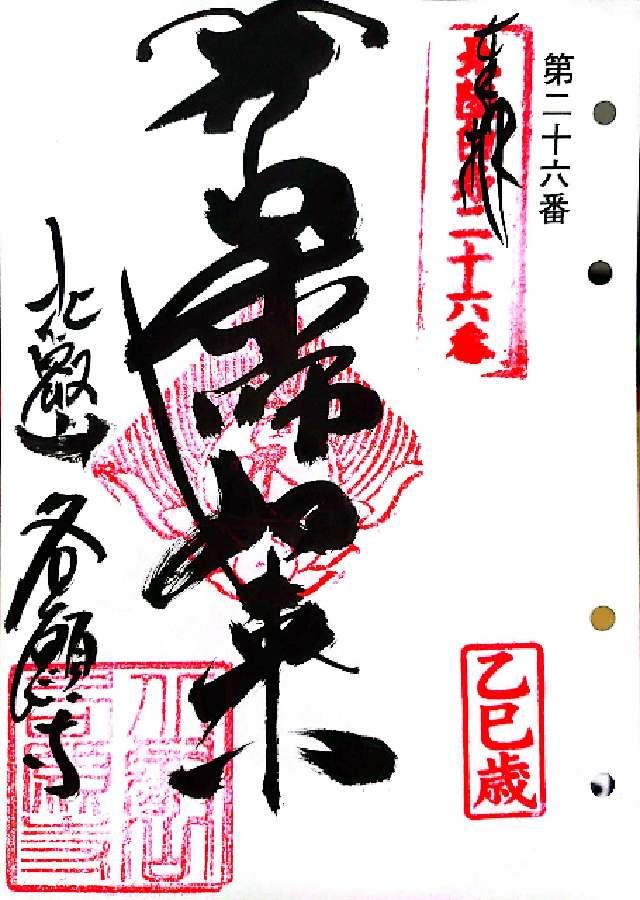 第二十六番
奉拝
二十六番
乙巳歳
薬師如来
北叡山 各願寺